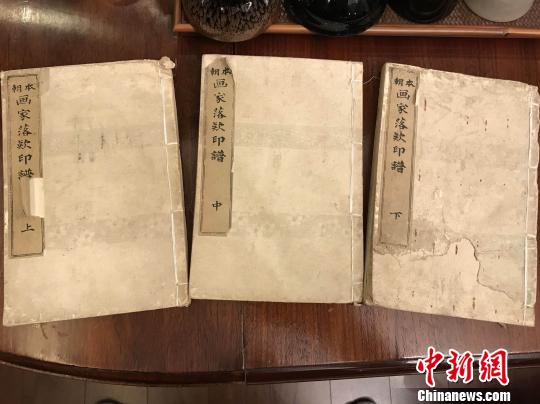 本朝
画家落欵印譜
上
本朝
画家落欵印譜
中
本朝
画家落欵印譜
下
中新网
Chinanews.com